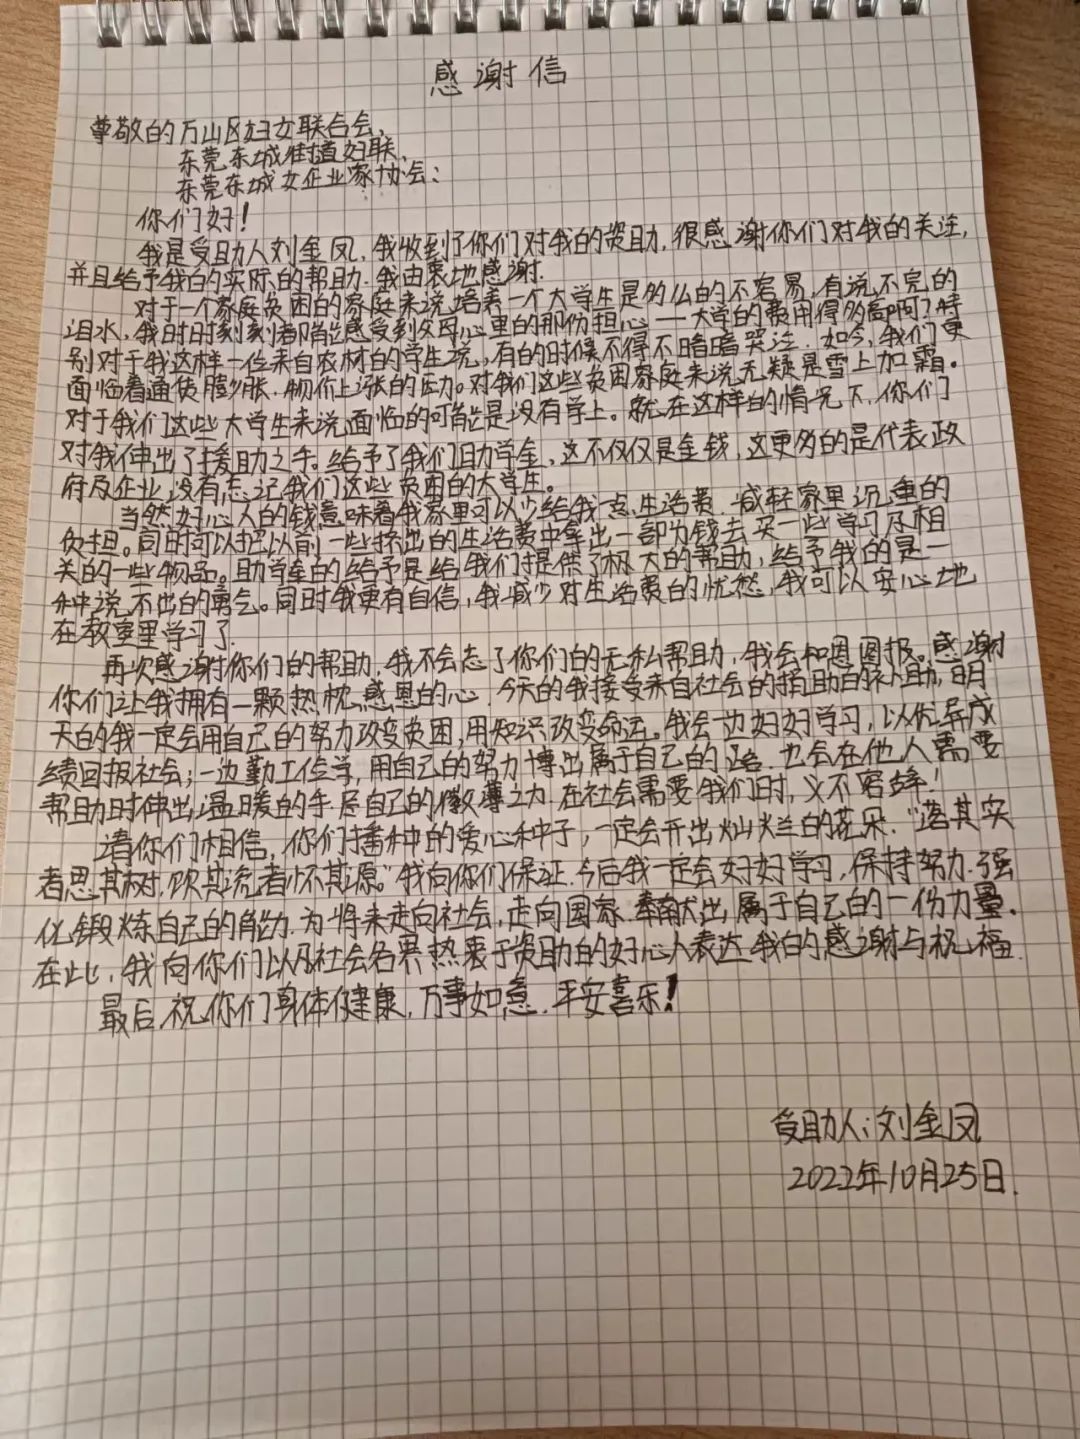 感谢信
尊敬的万山区妇女联合会、
东莞东城街道妇联、
东莞东城女企业家协会：
你们好！
我是受助人刘金凤，我收到了你们对我的资助，很感谢你们对我的关注，
并且给予我的实际的帮助，我由衷地感谢．
对于一个家庭贫困的家庭来说培养一个大学生是多么的不容易，有说不完的
泪水，我时时刻刻都能感受到父母心里的那份担心——大学的费用得多高啊？特
别对于我这样一位来自农村的学生说，有的时候不得不暗暗哭泣．如今，我们更
面临着通货膨胀．物价上涨的压力。对我们这些贫困家庭来说无疑是雪上加霜。
对于我们这些大学生来说面临的可能是没有学上。就在这样的情况下，你们
对我伸出了援助之手。给予了我们助学金，这不仅仅是金钱，这更多的是代表政
府及企业没有忘记我们这些贫困的大学生。
当然好心人的钱意味着我家里可以少给我一点生活费．减轻家里沉重的
负担。同时可以把以前一些挤出的生活费中拿出一部分钱去买一些学习及相
关的一些物品。助学金的给予是给我们提供了极大的帮助，给予我的是一
种说不出的勇气。同时我更有自信，我减少对生活费的忧愁，我可以安心地
在教室里学习了．
再次感谢你们的帮助，我不会忘了你们的无私帮助，我会知恩图报。感谢
你们让我拥有一颗热忱感恩的心．今天的我接受来自社会的捐助的补助，明
天的我一定会用自己的努力改变贫困，用知识改变命运。我会一边好好学习，以优异成
绩回报社会；一边勤工俭学，用自己的努力博出属于自己的路．也会在他人需要
帮助时伸出温暖的手．尽自己的微薄之力．在社会需要我们时，义不容辞！
请你们相信，你们播种的爱心种子，一定会开出灿烂的花朵．“落其实
者思其树，饮其流者怀其源。”我向你们保证．今后我一定会好好学习，保持努力．强
化锻炼自己的能力．为将来走向社会，走向国家．奉献出属于自己的一份力量．
在此，我向你们以及社会各界热衷于资助的好心人表达我的感谢与祝福．
最后，祝你们身体健康，万事如意．平安喜乐！
受助人：刘金凤
2022年10月25日．